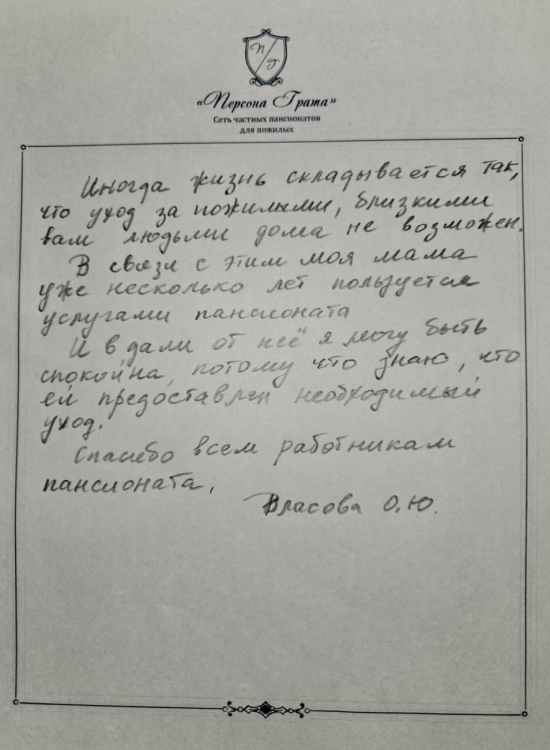 П/Г
«Персона Грата»
Сеть частных пансионатов
для пожилых
Иногда жизнь складывается так,
что уход за пожилыми, близкими
вам людьми дома не возможен.
В связи с этим моя мама
уже несколько лет пользуется
услугами пансионата
И в дали от неё я могу быть
спокойна, потому что знаю, что
ей предоставлен необходимый
уход.
Спасибо всем работникам
пансионата,
Власова О.Ю.